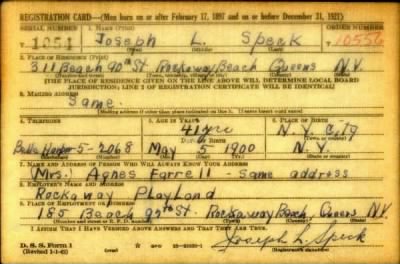 REGISTRATION CARD—(Men born on or after February 17, 1897 and on or before December 31, 1921)
SERIAL NUMBER 1. NAME (Print) ORDER NUMBER
T 1051 Joseph L. Speck 10556
2. PLACE OF RESIDENCE (Print)
311 Beach 90th St Rockaway Beach Queens N.Y.
[THE PLACE OF RESIDENCE GIVEN ON THE LINE ABOVE WILL DETERMINE LOCAL BOARD
JURISDICTION; LINE 2 OF REGISTRATION CERTIFICATE WILL BE IDENTICAL]
3. MAILING ADDRESS
Same
[Mailing address if other than place indicated on line 2. If same insert word same]
4. TELEPHONE 5. AGE IN YEARS 6. PLACE OF BIRTH
41 yrs N.Y. City
DATE OF BIRTH
Belle Harbor 5-2068 May 5 1900 N.Y.
7. NAME AND ADDRESS OF PERSON WHO WILL ALWAYS KNOW YOUR ADDRESS
(Mrs.) Agnes Farrell Same address
8. EMPLOYER'S NAME AND ADDRESS
Rockaway Playland
9. PLACE OF EMPLOYMENT OR BUSINESS
185 Beach 97th St. Rockaway Beach, Queens N.Y.
I AFFIRM THAT I HAVE VERIFIED ABOVE ANSWERS AND THAT THEY ARE TRUE.
D. S. S. Form 1
(Revised 1-1-42) Joseph L. Speck